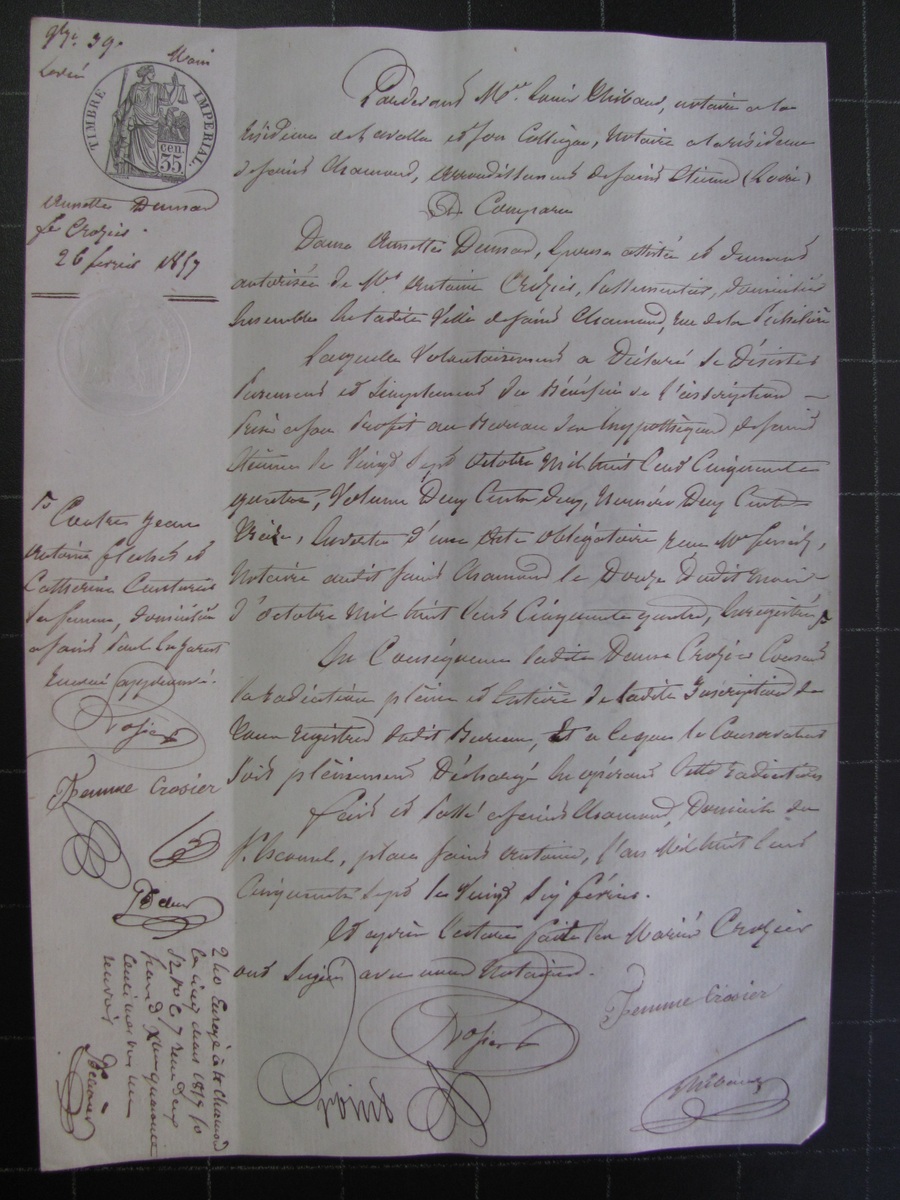 39.
Main
Levée
TIMBRE IMPERIAL
cen.
35
Annette Dumas
fe Crozier.
26 février 1857
Pardevant Me Louis Thibaud, notaire à la
résidence de Lavalla et son Collègue, Notaire à la résidence
de Saint Chamond, arrondissement de Saint Etienne (Loire)
A Comparu
Dame Annette Dumas, épouse assistée et dument
autorisée de Mr Antoine Crozier, passementier, domiciliés
ensembles en ladite Ville de Saint Chamond, rue de la
Laquelle Volontairement a Déclaré se Désister
purement et simplement du Bénéfice de l'inscription
prise à son profit au Bureau des hypothèques de Saint
Etienne le Vingt Sept octobre Mil huit Cent Cinquante
quatre, Volume Deux Cents deux, Numéro Deux Cents
treize, en vertu d'une acte obligatoire reçu Me
Notaire audit Saint Chamond le Douze dudit mois
d'octobre Mil huit Cent Cinquante quatre, enregistré,
Contre Jean
Antoine et
Catherine
sa femme, domiciliés
à Saint Paul en Jarest
En Conséquence ladite Dame Crozier Consent
la radiation pleine et entière de ladite Inscription de
tous registres dudit Bureau, et a ce que le Conservateur
soit pleinement Déchargé en opérant cette radiation
fait et passé à Saint Chamond, Domicile du
Sr Escomel, place Saint Antoine, l'an Mil huit Cent
Cinquante Sept le Vingt Six février.
Et après lecture faite les Mariés Crozier
ont Signé avec nous Notaires.
Femme Crosier
Femme Crosier
Thibaud
Enregé à St Chamond
le cinq mars 1857 fo
reçu Deux
francs